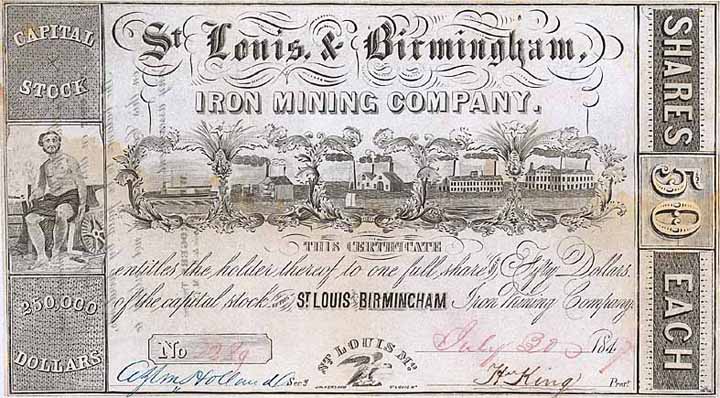 CAPITAL
STOCK
250,000
DOLLARS
St. Louis, & Birmingham,
IRON MINING COMPANY.
THIS CERTIFICATE
entitles the holder thereof to one full share of Fifty Dollars
of the capital stock of the ST LOUIS AND BIRMINGHAM Iron Mining Company.
No
ST LOUIS Mo.
July 30 184
Secy
Wm King Prest
SHARES
50
EACH